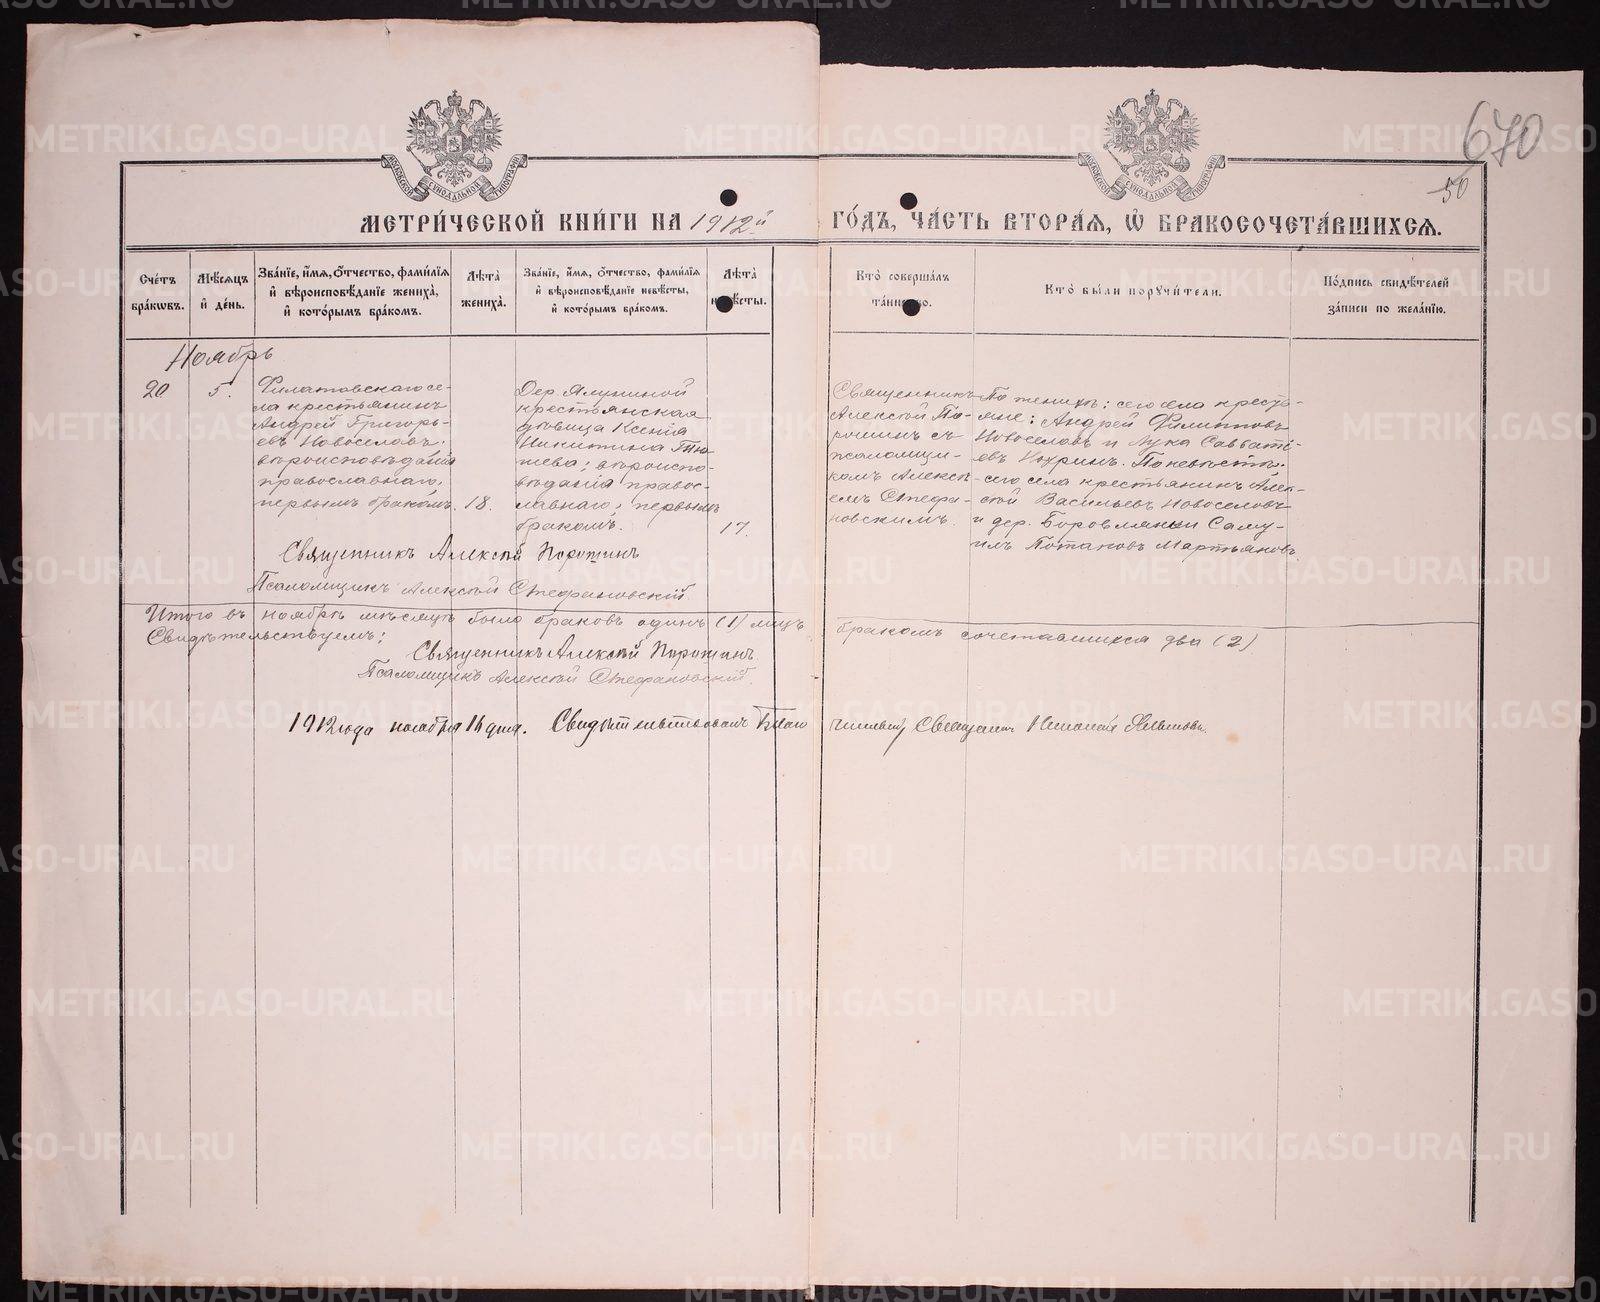 670
50
МЕТРИ́ЧЕСКОЙ КНИ́ГИ НА 1912й ГО́ДЪ, ЧА́СТЬ ВТОРА́Я, Ѡ БРАКОСОЧЕТА́ВШИХСЯ.
Сче́тъ бра́кωвъ.
Мѣ́сяцъ и де́нь.
Зва́нїе, и́мя, ѻ́тчество, фами́лїя и вѣроисповѣ́данїе жениха̀, и кото́рымъ бра́комъ.
Лѣ́та̀ жениха̀.
Зва́нїе, и́мя, ѻ́тчество, фами́лїя и вѣроисповѣ́данїе невѣ́сты, и кото́рымъ бра́комъ.
Лѣ́та̀ невѣ́сты.
Кто̀ соверша́лъ та́инство.
Кто̀ бы́ли порꙋчи́тели.
По́дпись свидѣ́телей за́писи по жела́нїю.
Ноябрь
20
5.
Филатовскаго се-
ла крестьянинъ
Андрей Григорь-
евъ Новоселовъ.
вѣроисповѣданія
православнаго,
первымъ бракомъ.
18.
Дер. Ялуниной
крестьянская
дѣвица Ксенія
Никитина
вѣроиспо-
вѣданія правос-
лавнаго; первымъ
бракомъ.
17.
Священникъ
Алексѣй По-
рошинъ съ
псаломщи-
комъ Алексѣ-
емъ Стефа-
новскимъ.
По женихѣ: сего села кресть-
яне: Андрей Филипповъ
Новоселовъ и Лука Савваті-
евъ По невѣстѣ:
сего села крестьянинъ Алек-
сѣй Васильевъ Новоселовъ
и дер. Боровлянки Саму-
илъ Потаповъ Мартьяновъ
Священникъ Алексѣй Порошинъ
Псаломщикъ Алексѣй Стефановскій.
Итого въ ноябрѣ мѣсяцѣ было браковъ одинъ (1) лицъ бракомъ сочетавшихся два (2)
Свидѣтельствуемъ:
Священникъ Алексѣй Порошинъ
Псаломщикъ Алексѣй Стефановскій.
1912 года ноября 14 дня. Свидѣтельствовалъ Благочинный Священникъ
METRIKI.GASO-URAL.RU